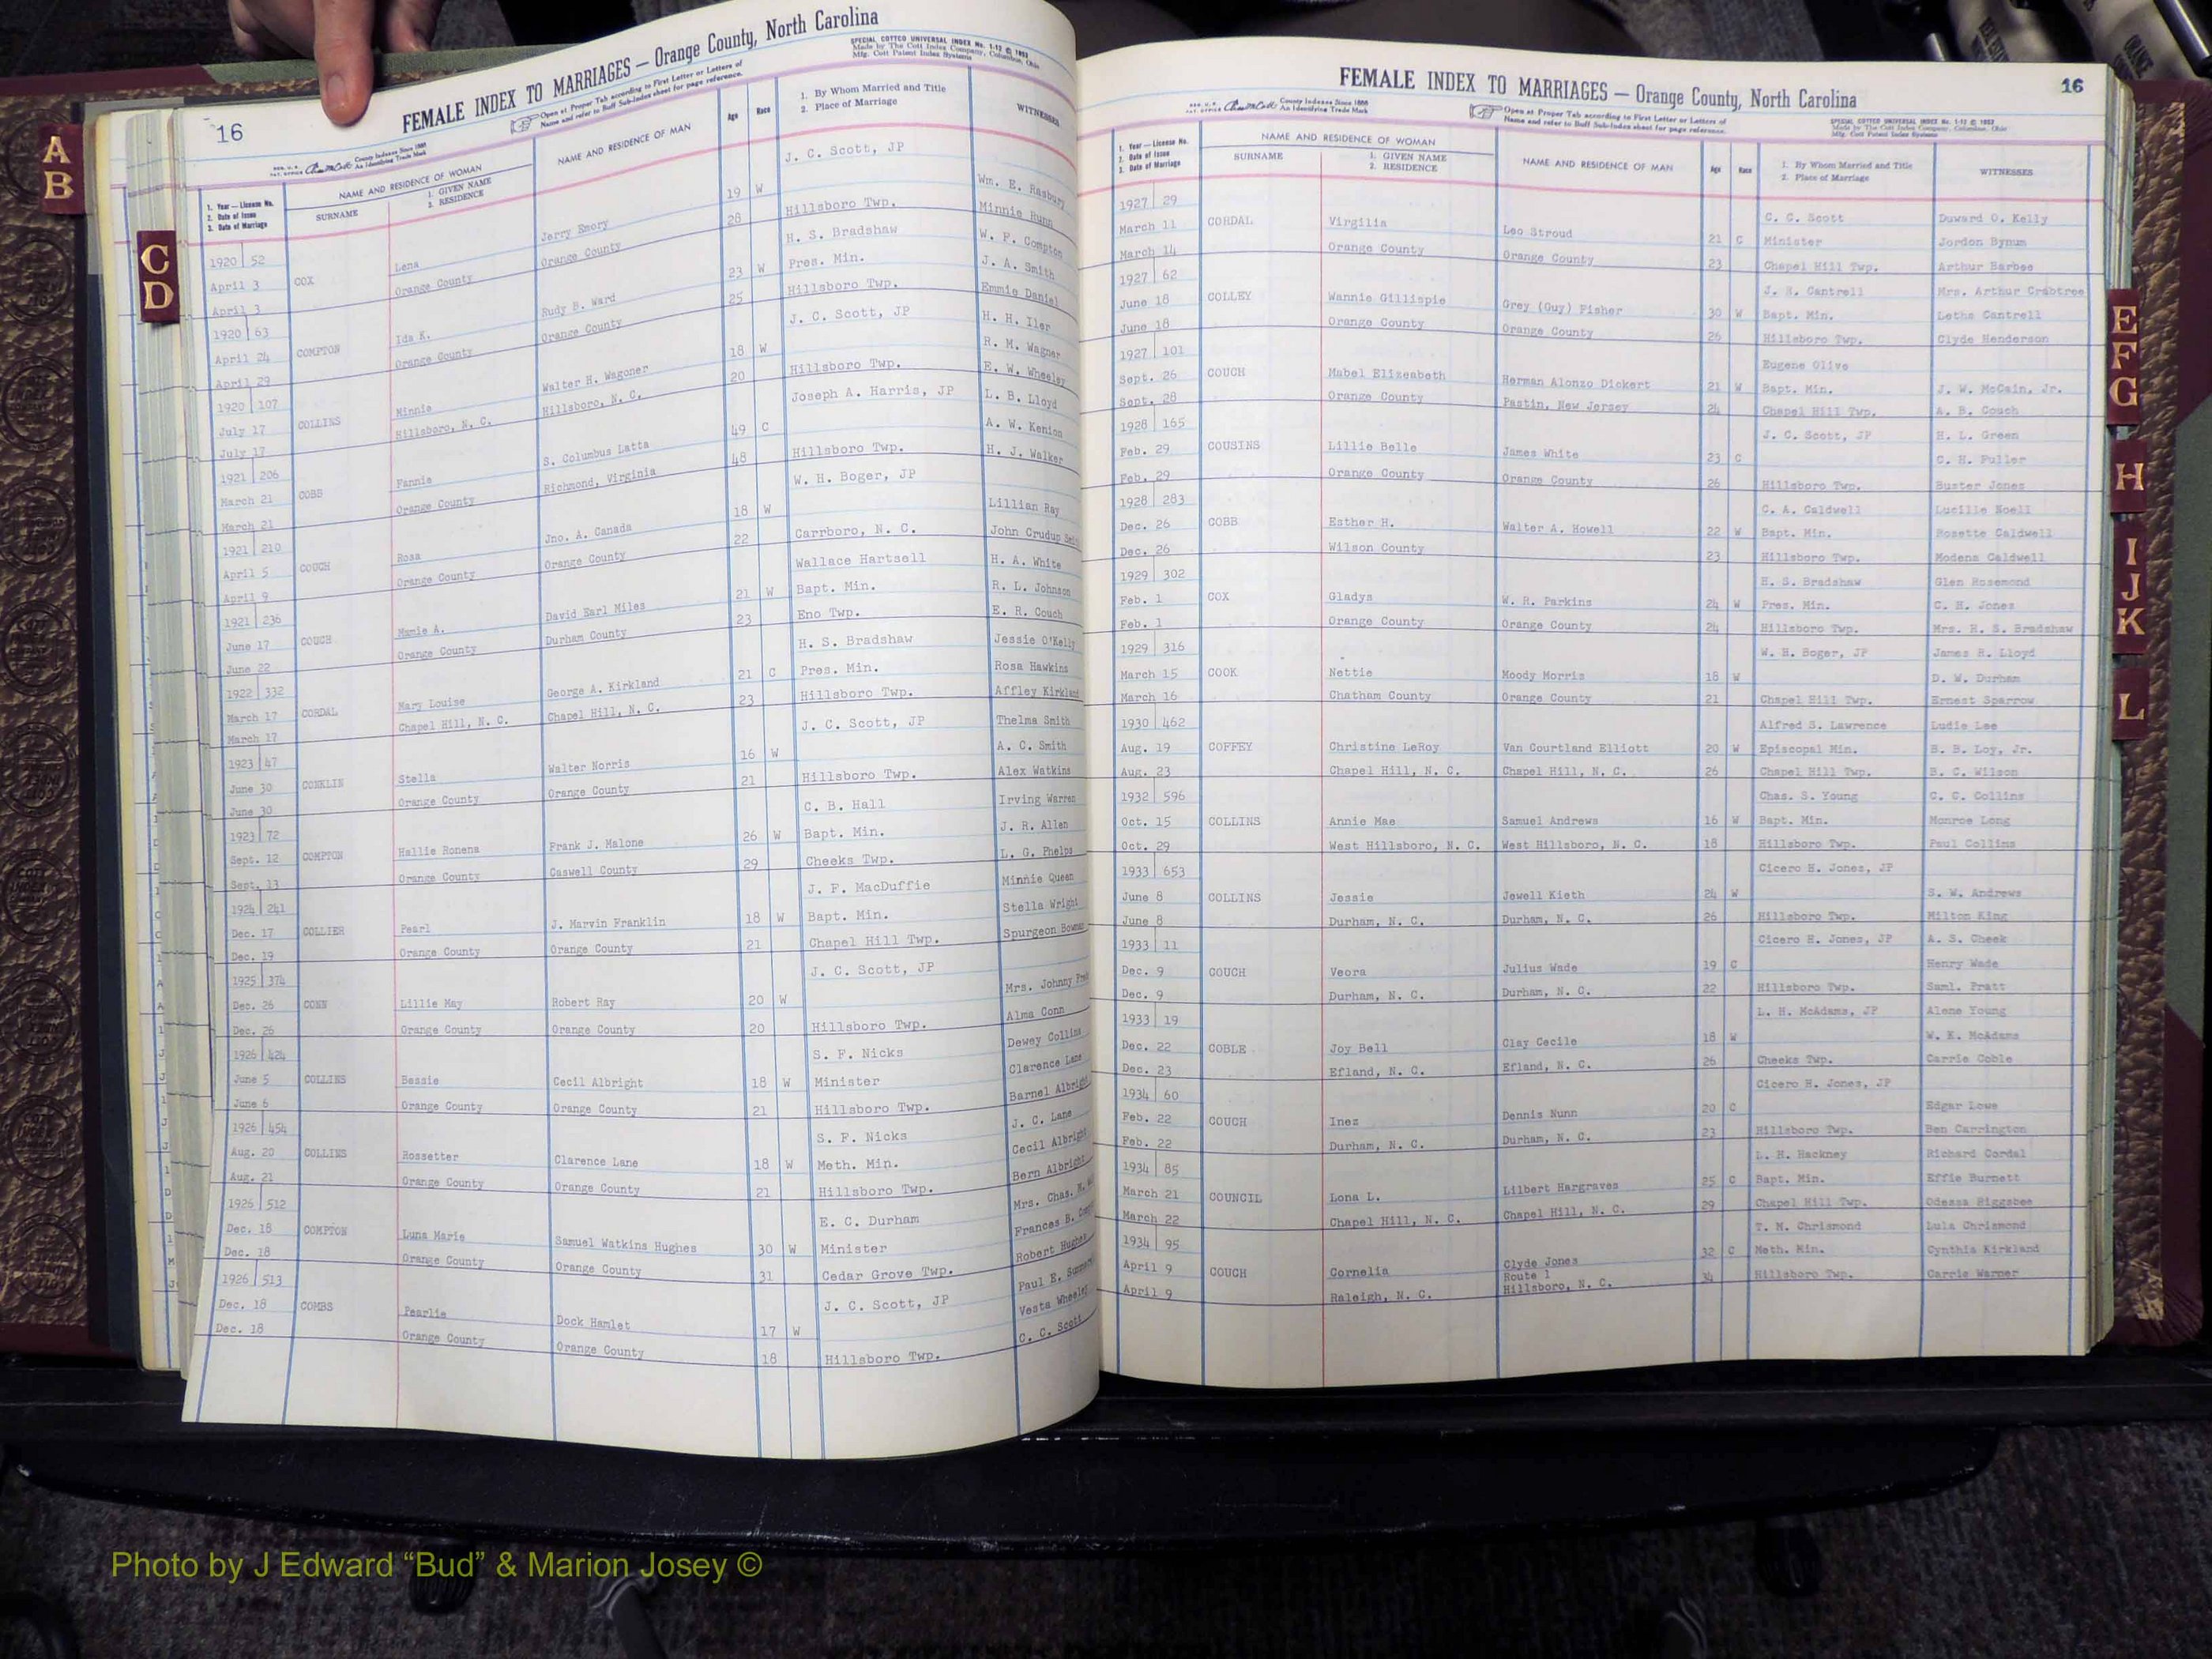 A
B
C
D
16
FEMALE INDEX TO MARRIAGES — Orange County, North Carolina
SPECIAL COTTCO UNIVERSAL INDEX No. 1-12 © 1953
Made by The Cott Index Company, Columbus, Ohio
Mfg. Cott Patent Index Systems
County Indexes Since 1888
An Identifying Trade Mark
Open at Proper Tab according to First Letter or Letters of
Name and refer to Buff Sub-Index sheet for page reference.
1. Year — License No.
2. Date of Issue
3. Date of Marriage
NAME AND RESIDENCE OF WOMAN
SURNAME
1. GIVEN NAME
2. RESIDENCE
NAME AND RESIDENCE OF MAN
Age
Race
1. By Whom Married and Title
2. Place of Marriage
WITNESSES
1920 52 J. C. Scott, JP
April 3 COX Lena Jerry Emory 19 W Wm. E. Rasbury
April 3 Orange County Orange County 28 Hillsboro Twp. Minnie Nunn
1920 63 H. S. Bradshaw W. F. Compton
April 24 COMPTON Ida K. Rudy B. Ward 23 W Pres. Min. J. A. Smith
April 29 Orange County Orange County 25 Hillsboro Twp. Emmie Daniel
1920 107 J. C. Scott, JP H. H. Iler
July 17 COLLINS Minnie Walter H. Wagoner 18 W R. M. Wagner
July 17 Hillsboro, N. C. Hillsboro, N. C. 20 Hillsboro Twp. E. W. Wheeley
1921 206 Joseph A. Harris, JP L. B. Lloyd
March 21 COBB Fannie S. Columbus Latta 49 C A. W. Kenion
March 21 Orange County Richmond, Virginia 48 Hillsboro Twp. H. J. Walker
1921 210 W. H. Boger, JP
April 5 COUCH Rosa Jno. A. Canada 18 W Lillian Ray
April 9 Orange County Orange County 22 Carrboro, N. C. John Crudup
1921 236 Wallace Hartsell H. A. White
June 17 COUCH Mamie A. David Earl Miles 21 W Bapt. Min. R. L. Johnson
June 22 Orange County Durham County 23 Eno Twp. E. R. Couch
1922 332 H. S. Bradshaw Jessie O'Kelly
March 17 CORDAL Mary Louise George A. Kirkland 21 C Pres. Min. Rosa Hawkins
March 17 Chapel Hill, N. C. Chapel Hill, N. C. 23 Hillsboro Twp. Affley Kirkland
1923 47 J. C. Scott, JP Thelma Smith
June 30 CONKLIN Stella Walter Norris 16 W A. C. Smith
June 30 Orange County Orange County 21 Hillsboro Twp. Alex Watkins
1923 72 C. B. Hall Irving Warren
Sept. 12 COMPTON Hallie Ronena Frank J. Malone 26 W Bapt. Min. J. R. Allen
Sept. 13 Orange County Caswell County 29 Cheeks Twp. L. G. Phelps
1924 241 J. F. MacDuffie Minnie Queen
Dec. 17 COLLIER Pearl J. Marvin Franklin 18 W Bapt. Min. Stella Wright
Dec. 19 Orange County Orange County 21 Chapel Hill Twp. Spurgeon
1925 374 J. C. Scott, JP
Dec. 26 CONN Lillie May Robert Ray 20 W Mrs. Johnny
Dec. 26 Orange County Orange County 20 Hillsboro Twp. Alma Conn
1926 424 S. F. Nicks Dewey Collins
June 5 COLLINS Bessie Cecil Albright 18 W Minister Clarence Lane
June 6 Orange County Orange County 21 Hillsboro Twp. Barnel Albright
1926 454 S. F. Nicks J. C. Lane
Aug. 20 COLLINS Rossetter Clarence Lane 18 W Meth. Min. Cecil Albright
Aug. 21 Orange County Orange County 21 Hillsboro Twp. Bern Albright
1926 512 E. C. Durham Mrs. Chas.
Dec. 18 COMPTON Luna Marie Samuel Watkins Hughes 30 W Minister Frances B.
Dec. 18 Orange County Orange County 31 Cedar Grove Twp. Robert Hughes
1926 513 J. C. Scott, JP Paul E.
Dec. 18 COMBS Pearlie Dock Hamlet 17 W Vesta Wheeley
Dec. 18 Orange County Orange County 18 Hillsboro Twp. C. C. Scott
16
FEMALE INDEX TO MARRIAGES — Orange County, North Carolina
County Indexes Since 1888
An Identifying Trade Mark
Open at Proper Tab according to First Letter or Letters of
Name and refer to Buff Sub-Index sheet for page reference.
SPECIAL COTTCO UNIVERSAL INDEX No. 1-12 © 1953
Made by The Cott Index Company, Columbus, Ohio
Mfg. Cott Patent Index Systems
1. Year — License No.
2. Date of Issue
3. Date of Marriage
NAME AND RESIDENCE OF WOMAN
SURNAME
1. GIVEN NAME
2. RESIDENCE
NAME AND RESIDENCE OF MAN
Age
Race
1. By Whom Married and Title
2. Place of Marriage
WITNESSES
1927 29 C. C. Scott Duward O. Kelly
March 11 CORDAL Virgilia Leo Stroud 21 C Minister Jordon Bynum
March 14 Orange County Orange County 23 Chapel Hill Twp. Arthur Barbee
1927 62 J. R. Cantrell Mrs. Arthur Crabtree
June 18 COLLEY Wannie Gillispie Grey (Guy) Fisher 30 W Bapt. Min. Letha Cantrell
June 18 Orange County Orange County 26 Hillsboro Twp. Clyde Henderson
1927 101 Eugene Olive
Sept. 26 COUCH Mabel Elizeabeth Herman Alonzo Dickert 21 W Bapt. Min. J. W. McCain, Jr.
Sept. 28 Orange County Pastin, New Jersey 24 Chapel Hill Twp. A. B. Couch
1928 165 J. C. Scott, JP H. L. Green
Feb. 29 COUSINS Lillie Belle James White 23 C C. H. Fuller
Feb. 29 Orange County Orange County 26 Hillsboro Twp. Buster Jones
1928 283 C. A. Caldwell Lucille Noell
Dec. 26 COBB Esther H. Walter A. Howell 22 W Bapt. Min. Rosette Caldwell
Dec. 26 Wilson County 23 Hillsboro Twp. Modena Caldwell
1929 302 H. S. Bradshaw Glen Rosemond
Feb. 1 COX Gladys W. R. Parkins 24 W Pres. Min. C. H. Jones
Feb. 1 Orange County Orange County 24 Hillsboro Twp. Mrs. H. S. Bradshaw
1929 316 W. H. Boger, JP James R. Lloyd
March 15 COOK Nettie Moody Morris 18 W D. W. Durham
March 16 Chatham County Orange County 21 Chapel Hill Twp. Ernest Sparrow
1930 462 Alfred S. Lawrence Ludie Lee
Aug. 19 COFFEY Christine LeRoy Van Courtland Elliott 20 W Episcopal Min. B. B. Loy, Jr.
Aug. 23 Chapel Hill, N. C. Chapel Hill, N. C. 26 Chapel Hill Twp. B. C. Wilson
1932 596 Chas. S. Young C. C. Collins
Oct. 15 COLLINS Annie Mae Samuel Andrews 16 W Bapt. Min. Monroe Long
Oct. 29 West Hillsboro, N. C. West Hillsboro, N. C. 18 Hillsboro Twp. Paul Collins
1933 653 Cicero H. Jones, JP
June 8 COLLINS Jessie Jewell Kieth 24 W S. W. Andrews
June 8 Durham, N. C. Durham, N. C. 26 Hillsboro Twp. Milton King
1933 11 Cicero H. Jones, JP A. S. Cheek
Dec. 9 COUCH Veora Julius Wade 19 C Henry Wade
Dec. 9 Durham, N. C. Durham, N. C. 22 Hillsboro Twp. Saml. Pratt
1933 19 L. H. McAdams, JP Alene Young
Dec. 22 COBLE Joy Bell Clay Cecile 18 W W. K. McAdams
Dec. 23 Efland, N. C. Efland, N. C. 26 Cheeks Twp. Carrie Coble
1934 60 Cicero H. Jones, JP
Feb. 22 COUCH Inez Dennis Nunn 20 C Edgar Lowe
Feb. 22 Durham, N. C. Durham, N. C. 23 Hillsboro Twp. Ben Carrington
1934 85 L. H. Hackney Richard Cordal
March 21 COUNCIL Lona L. Lilbert Hargraves 25 C Bapt. Min. Effie Burnett
March 22 Chapel Hill, N. C. Chapel Hill, N. C. 29 Chapel Hill Twp. Odessa Riggsbee
1934 95 T. M. Chrismond Lula Chrismond
April 9 COUCH Cornelia Clyde Jones 32 C Meth. Min. Cynthia Kirkland
April 9 Raleigh, N. C. Route 1 34 Hillsboro Twp. Carrie Warner
Hillsboro, N. C.
E
F
G
H
I
J
K
L
Photo by J Edward “Bud” & Marion Josey ©